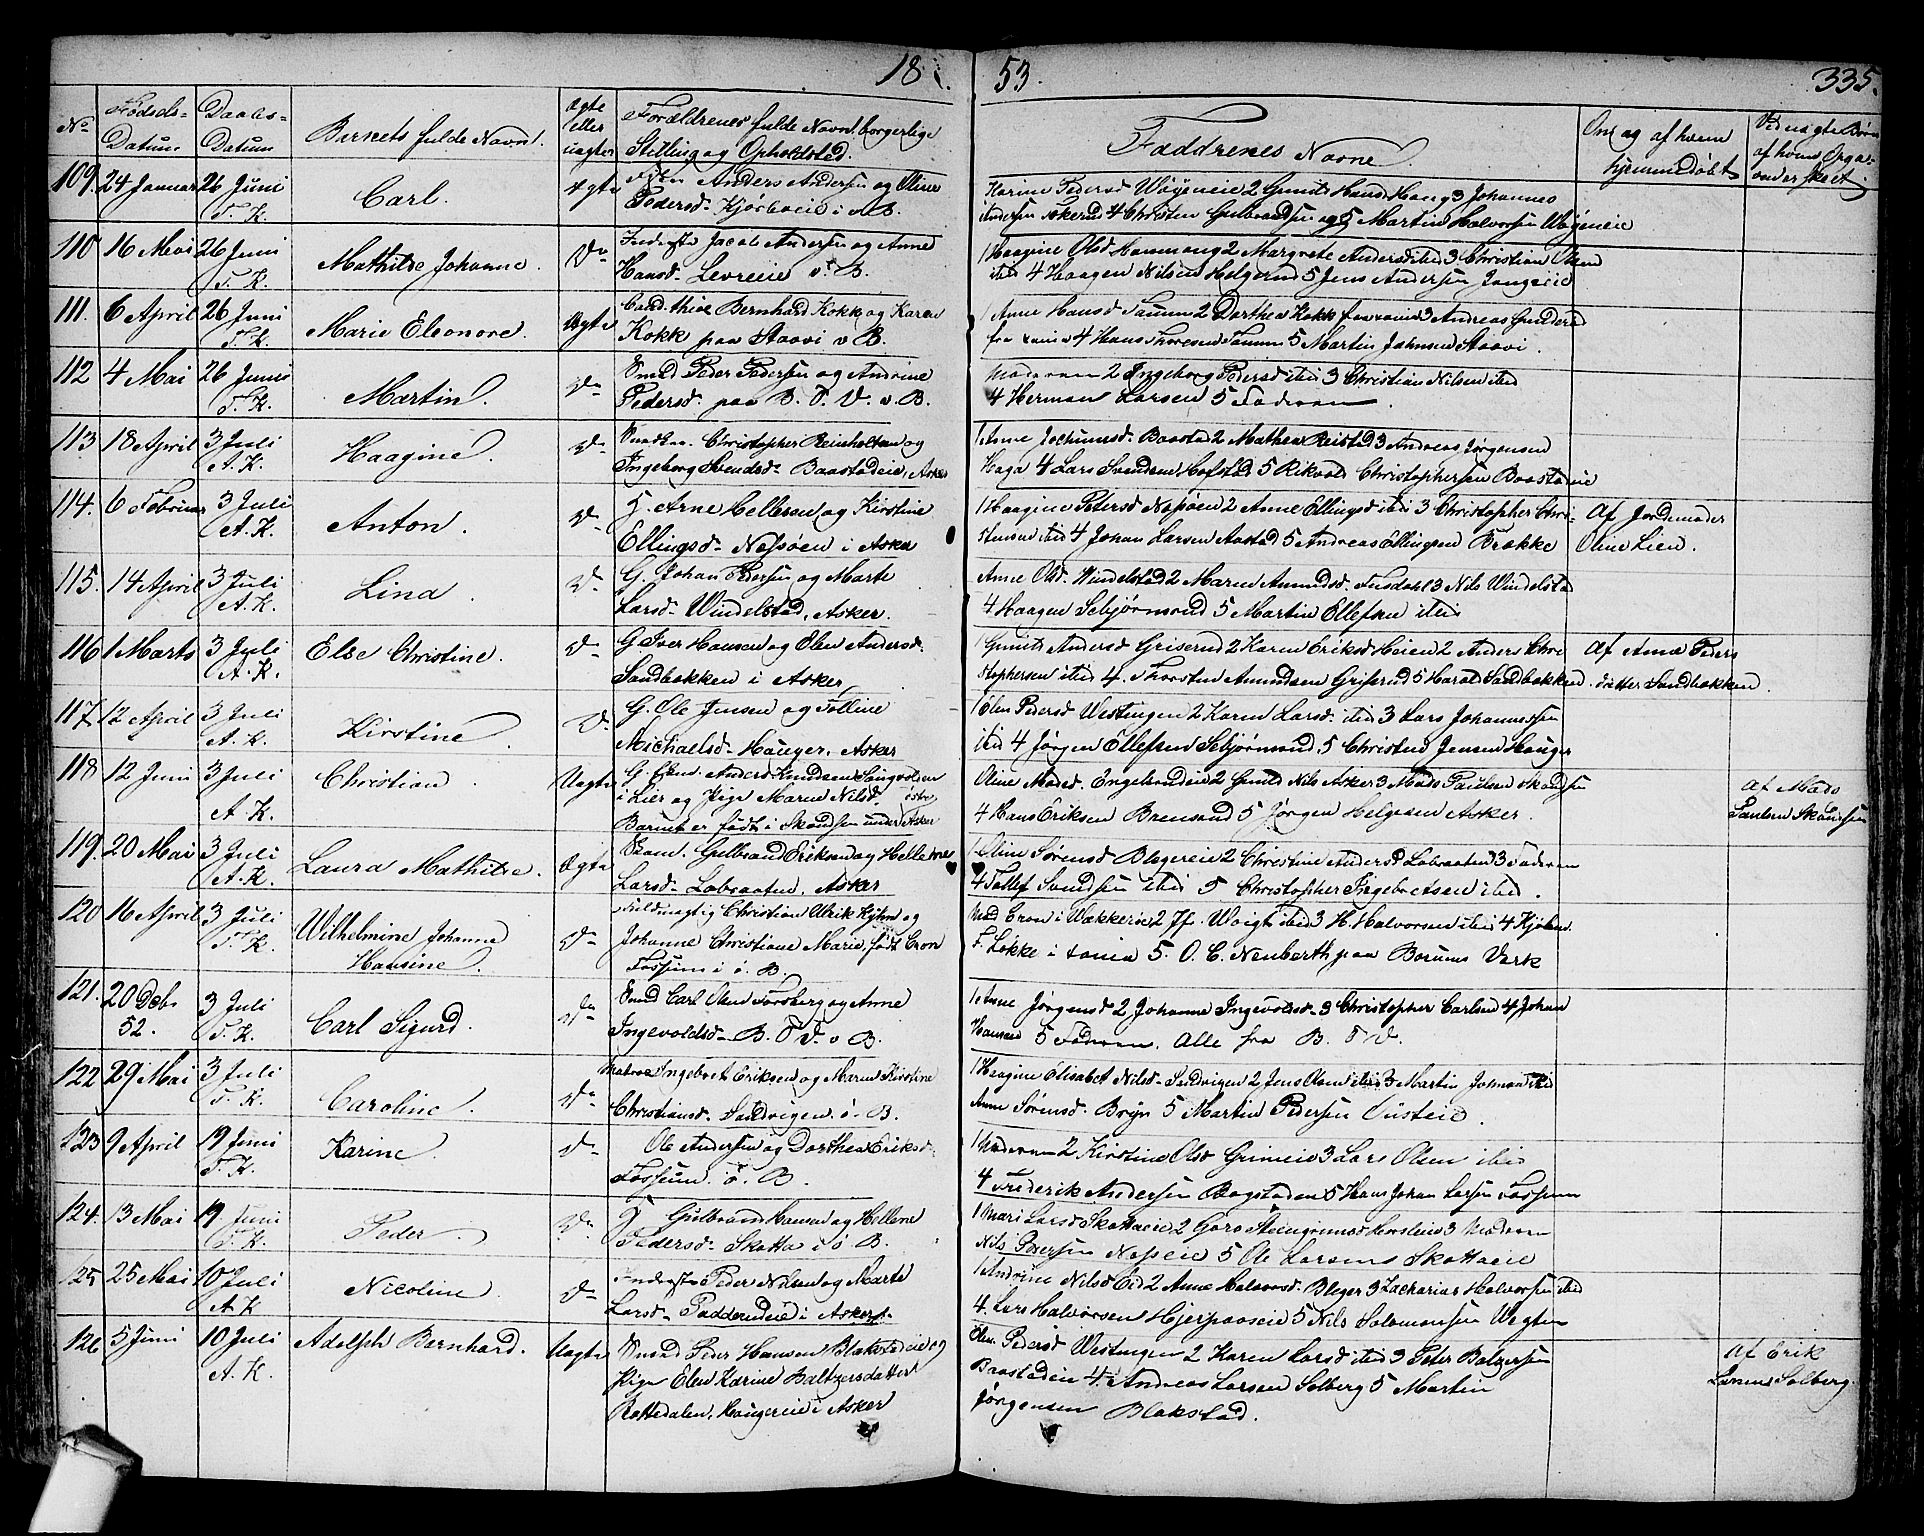 18
53.
335.
No
Fødsels-
Datum
Daabs-
Datum
Barnets fulde Navn.
Ægte
eller
uægte
Forældrenes fulde Navn, borgerlige
Stilling og Opholdsted.
Faddrenes Navne
Om og af hvem
hjemmedøbt
Ved uægte Børn
af hvem Opga-
ven er skeet.
109. 24 Januar 26 Juni
T. K.
Carl.
Ægte
Anders Andersen og Oline
Pedersd. Kjørboeie i v. B.
Karine Pedersd Wøyeneie 2 Gunild Hansd Haug 3 Johannes
Andersen Askerud 4 Christen Gulbrandsen og 5 Martin Halvorsen Wøyeneie
110 16 Mai 26 Juni
T. K.
Mathilde Johanne.
Do
Inderste Jacob Andersen og Anne
Hansd. Levreeie v. B.
1 Haagine Olsd Hammang 2 Margrete Andersd ibid 3 Christian Olsen
ibid 4 Haagen Nilsen Helgerud 5 Jens Andersen Jongeeie
111. 6 April 26 Juni
T. K.
Marie Eleonore.
Ægte
Cand. theol Bernhard Kokk og Karen
Kokk paa Staavi v B.
Anne Hansd Tanum 2 Dorthea Kokk fra Xania 3 Andreas Gundersd
fra Xania 4 Hans Thoresen Tanum 5 Martin Johnsen Staavi.
112 4 Mai 26 Juni
T. K.
Martin.
Do
Smed Peder Pedersen og Andrine
Pedersd. paa B. J. V. v. B.
Moderen 2 Ingeborg Pedersd ibid 3 Christian Nilsen ibid
4 Herman Larsen 5 Faderen.
113 18 April 3 Juli
A. K.
Haagine.
Do
Christopher Reinholtsen og
Ingeborg Svendsd. Baastadeie, Asker
1 Anne Jochumsd. Baastad 2 Mathea Reistad 3 Andreas Jørgensen
Haga 4 Lars Svendsen Hofstad 5 Rikvald Christophersen Baastadeie
114. 6 Februar 3 Juli
A. K.
Anton.
Do
G. Arne Hellesen og Kirstine
Ellingsd. Nesøen i Asker
1 Haagine Petersd Nesøen 2 Anne Ellingsd ibid 3 Christopher Chri-
stensen ibid 4 Johan Larsen Aastad 5 Andreas Ellingsen Brække
Af Jordemoder
Oline Lien.
115. 14 April 3 Juli
A. K.
Lina.
Do
G. Johan Pedersen og Marte
Larsd. Windelstad, Asker.
Anne Olsd. Windelstad 2 Maren Amundsd. Fusdahl 3 Nils Windelstad
4 Haagen Sebjørnsrud 5 Martin Ellefsen ibid
116 1 Marts 3 Juli
A. K.
Else Christine.
Do
G Iver Hansen og Olea Andersd.
Sandbakken i Asker
1 Gunild Andersd Griserud 2 Karen Eriksd Heien 2 Anders Chri
stophersen ibid 4. Thorsten Amundsen Griserud 5 Harald Sandbakken.
Af Anne Peders
datter Sandbakken.
117. 12 April 3 Juli
A. K.
Kirstine.
Do
G. Ole Jensen og Tolline
Michaelsd. Hauger, Asker
1 Elen Pedersd Westengen 2 Karen Larsd. ibid 3 Lars Johannessen
ibid 4 Jørgen Ellefsen Sebjørnsrud, 5 Christen Jensen Hauger
118 12 Juni 3 Juli
A. K.
Christian.
Uægte
Anders Knudsen
i Lier og Pige Maren Nilsd.
Barnet er født i Skoudsen under Asker
Oline Madsd. Engelsrudeie 2 Gunild Nils Asker 3 Mads Paulsen Skoudsen
4 Hans Eriksen Brensrud 5 Jørgen Helgesen Asker.
Af Mads
Paulsen Skoudsen
119. 20 Mai 3 Juli
A. K.
Laura Mathilde.
Ægte
Gulbrand Eriksen og Hellene
Larsd. Labraaten, Asker
1 Oline Sørensd Blegereie 2 Christine Andersd Labraaten 3 Faderen
4 Tollef Svendsen ibid 5 Christopher Ingebretsen ibid.
120 16 April 3 Juli
T. K.
Wilhelmine Johanne
Hansine.
Do
Fuldmægtig Christian Ulrik Kyhn og
Johanne Christiane Marie, født Cron
Fossum i ø. B.
Mad Cron i Wækkerøe 2 Jf. Woigt ibid 3 H. Halvorsen ibid 4 Kjøbm.
F. Løkke i Xania 5. O. C. Neuberth paa Bærums Værk
121. 20 Decbr
52. 3 Juli
T. K.
Carl Sigurd.
Do
Smed Carl Olsen Forsberg og Anne
Ingevoldsd. B. J. V. v B.
1 Anne Jørgensd 2 Johanne Ingevoldsd. 3 Christopher Carlsen 4 Johan
Hansen 5 Faderen. Alle fra B. J. V.
122 29 Mai 3 Juli
T. K.
Caroline.
Do
Matros Ingebret Eriksen og Maren Kirstine
Christiansd. Sandvigen. ø. B.
1 Haagine Elisabet Nilsd. Sandvigen 2 Jens Olsen ibid 3 Martin Johansen ibid
Anne Sørensd. Bryn 5 Martin Pedersen Ousteie.
123 9 April 19 Juni
T. K.
Karine.
Do
Ole Andersen og Dorthea Eriksd.
Fossum. ø. B.
1 Moderen 2 Kirstine Olsd Grimeie 3 Lars Olsen ibid
4 Frederik Andersen Bagstaden 5 Hans Johan Larsen Fossum
124. 13 Mai 19 Juni
T. K.
Peder.
Do
G Gulbrand Hansen og Hellene
Pedersd. Skotta i ø B.
1 Mari Larsd Skottaeie 2 Goro Steingrimsd Hensleie 3 Moderen
Nils Pedersen Næseie 5 Ole Larsens Skottaeie
125 25 Mai 10 Juli
A. K
Nicoline.
Do
Inderste Peder Nilsen og Marte
Larsd. Padderudeie i Asker
1 Andrine Nilsd Eid 2 Anne Halvorsd. Bleger 3 Zacharias Halvorsen ibid
4. Lars Halvorsen Hjerpaaseie 5 Nils Salomonsen Wegten
126 5 Juni 10 Juli
A. K.
Adolph Bernhard.
Uægte
Smed Peder Hansen Blakstadeie og
Pige Elen Karine Baltzersdatter
Rottedalen, Haugereie i Asker
Elen Pedersd Westengen 2 Karen Larsd ibid 3 Peter Baltzersen
Baastadeie 4. Andreas Larsen Solberg 5 Martin
Jørgensen Blakstad.
Af Erik
Larsens Solberg.